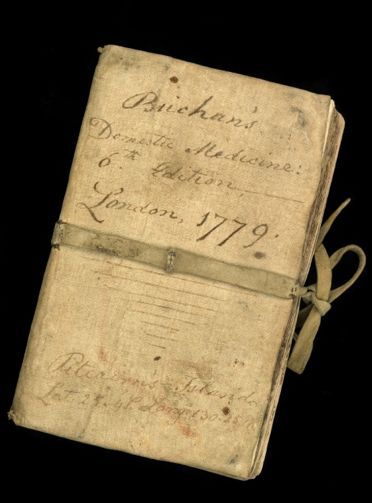 Buchan's
Domestic Medicine:
6.th Edition,
London, 1779.
Pitcairn's Island
Lat. 25. Long. 130.